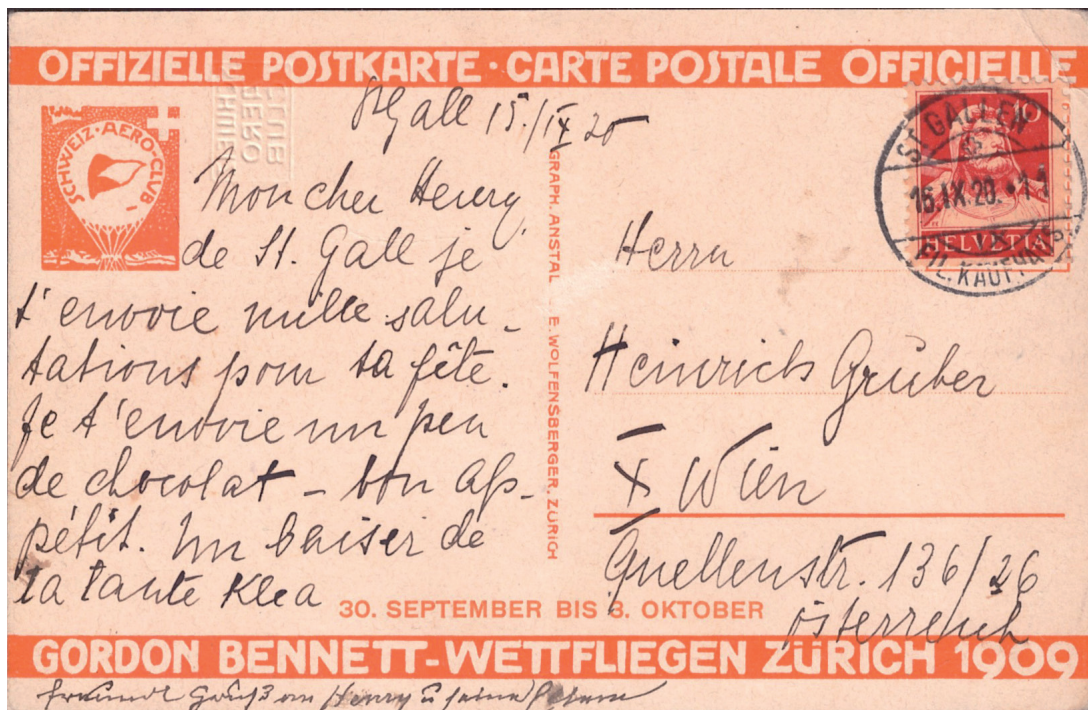 OFFIZIELLE POSTKARTE · CARTE POSTALE OFFICIELLE
SCHWEIZ · AERO-CLUB
St Gall 15./IX 20
Mon cher Henry,
de St. Gall je
t'envoie mille salu-
tations pour ta fête.
Je t'envoie un peu
de chocolat – bon ap-
pétit. Un baiser de
ta tante Klea
GRAPH. ANSTALT E. WOLFENSBERGER, ZÜRICH
10
HELVETIA
ST. GALLEN
15.IX.20.
FIL. KAUFHAUS
Herrn
Heinrich Gruber
X Wien
Quellenstr. 136/26
Österreich
30. SEPTEMBER BIS 3. OKTOBER
GORDON BENNETT-WETTFLIEGEN ZÜRICH 1909
Gruß an Henry u seine Eltern